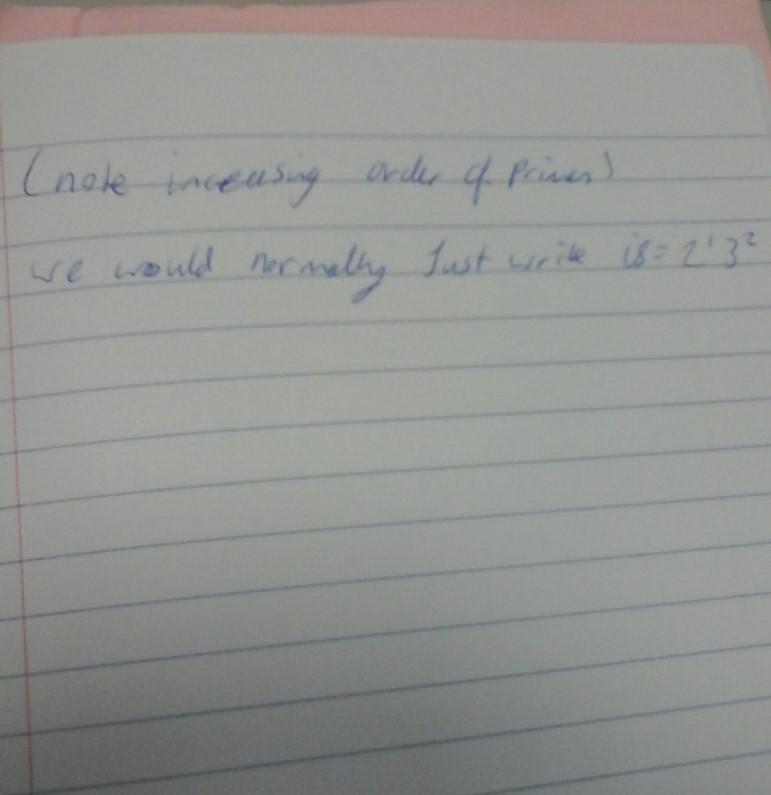 (note increasing order of primes)
we would normally Just write 18 = 2¹3²